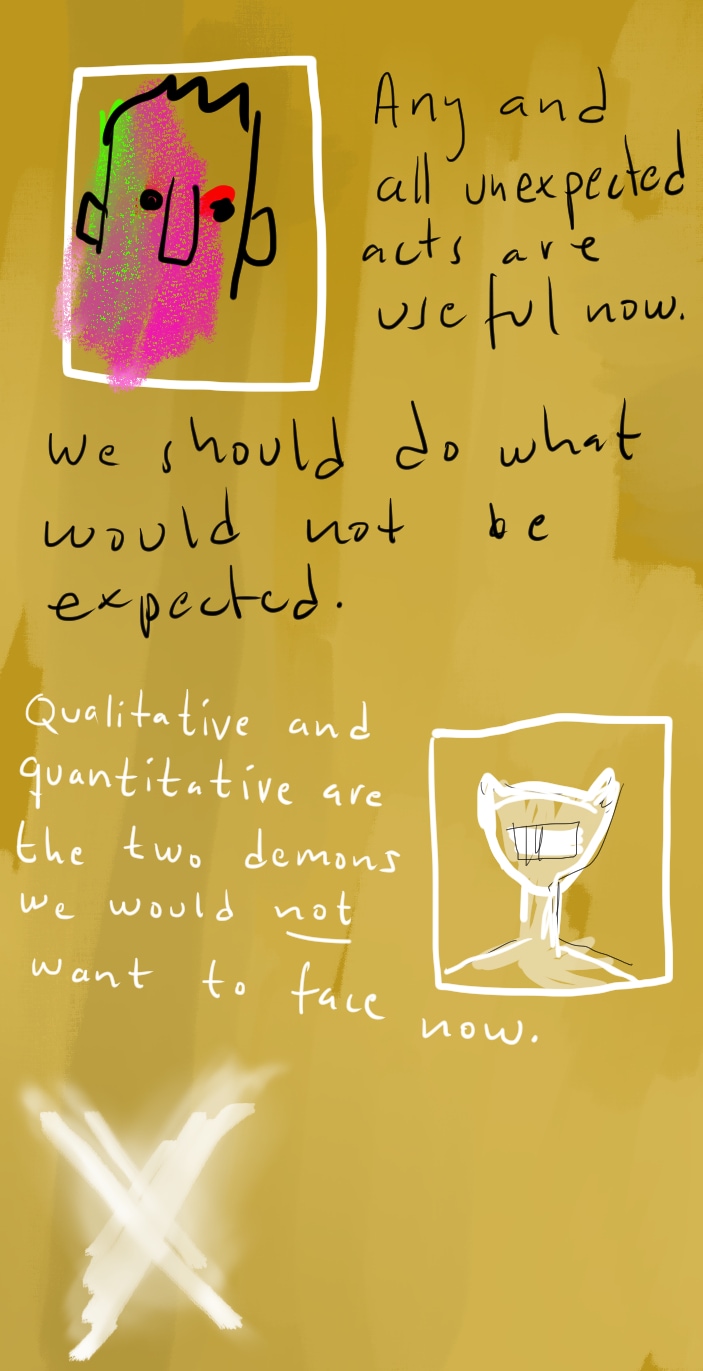 Any and
all unexpected
acts are
useful now.
We should do what
would not be
expected.
Qualitative and
quantitative are
the two demons
we would not
want to face
now.